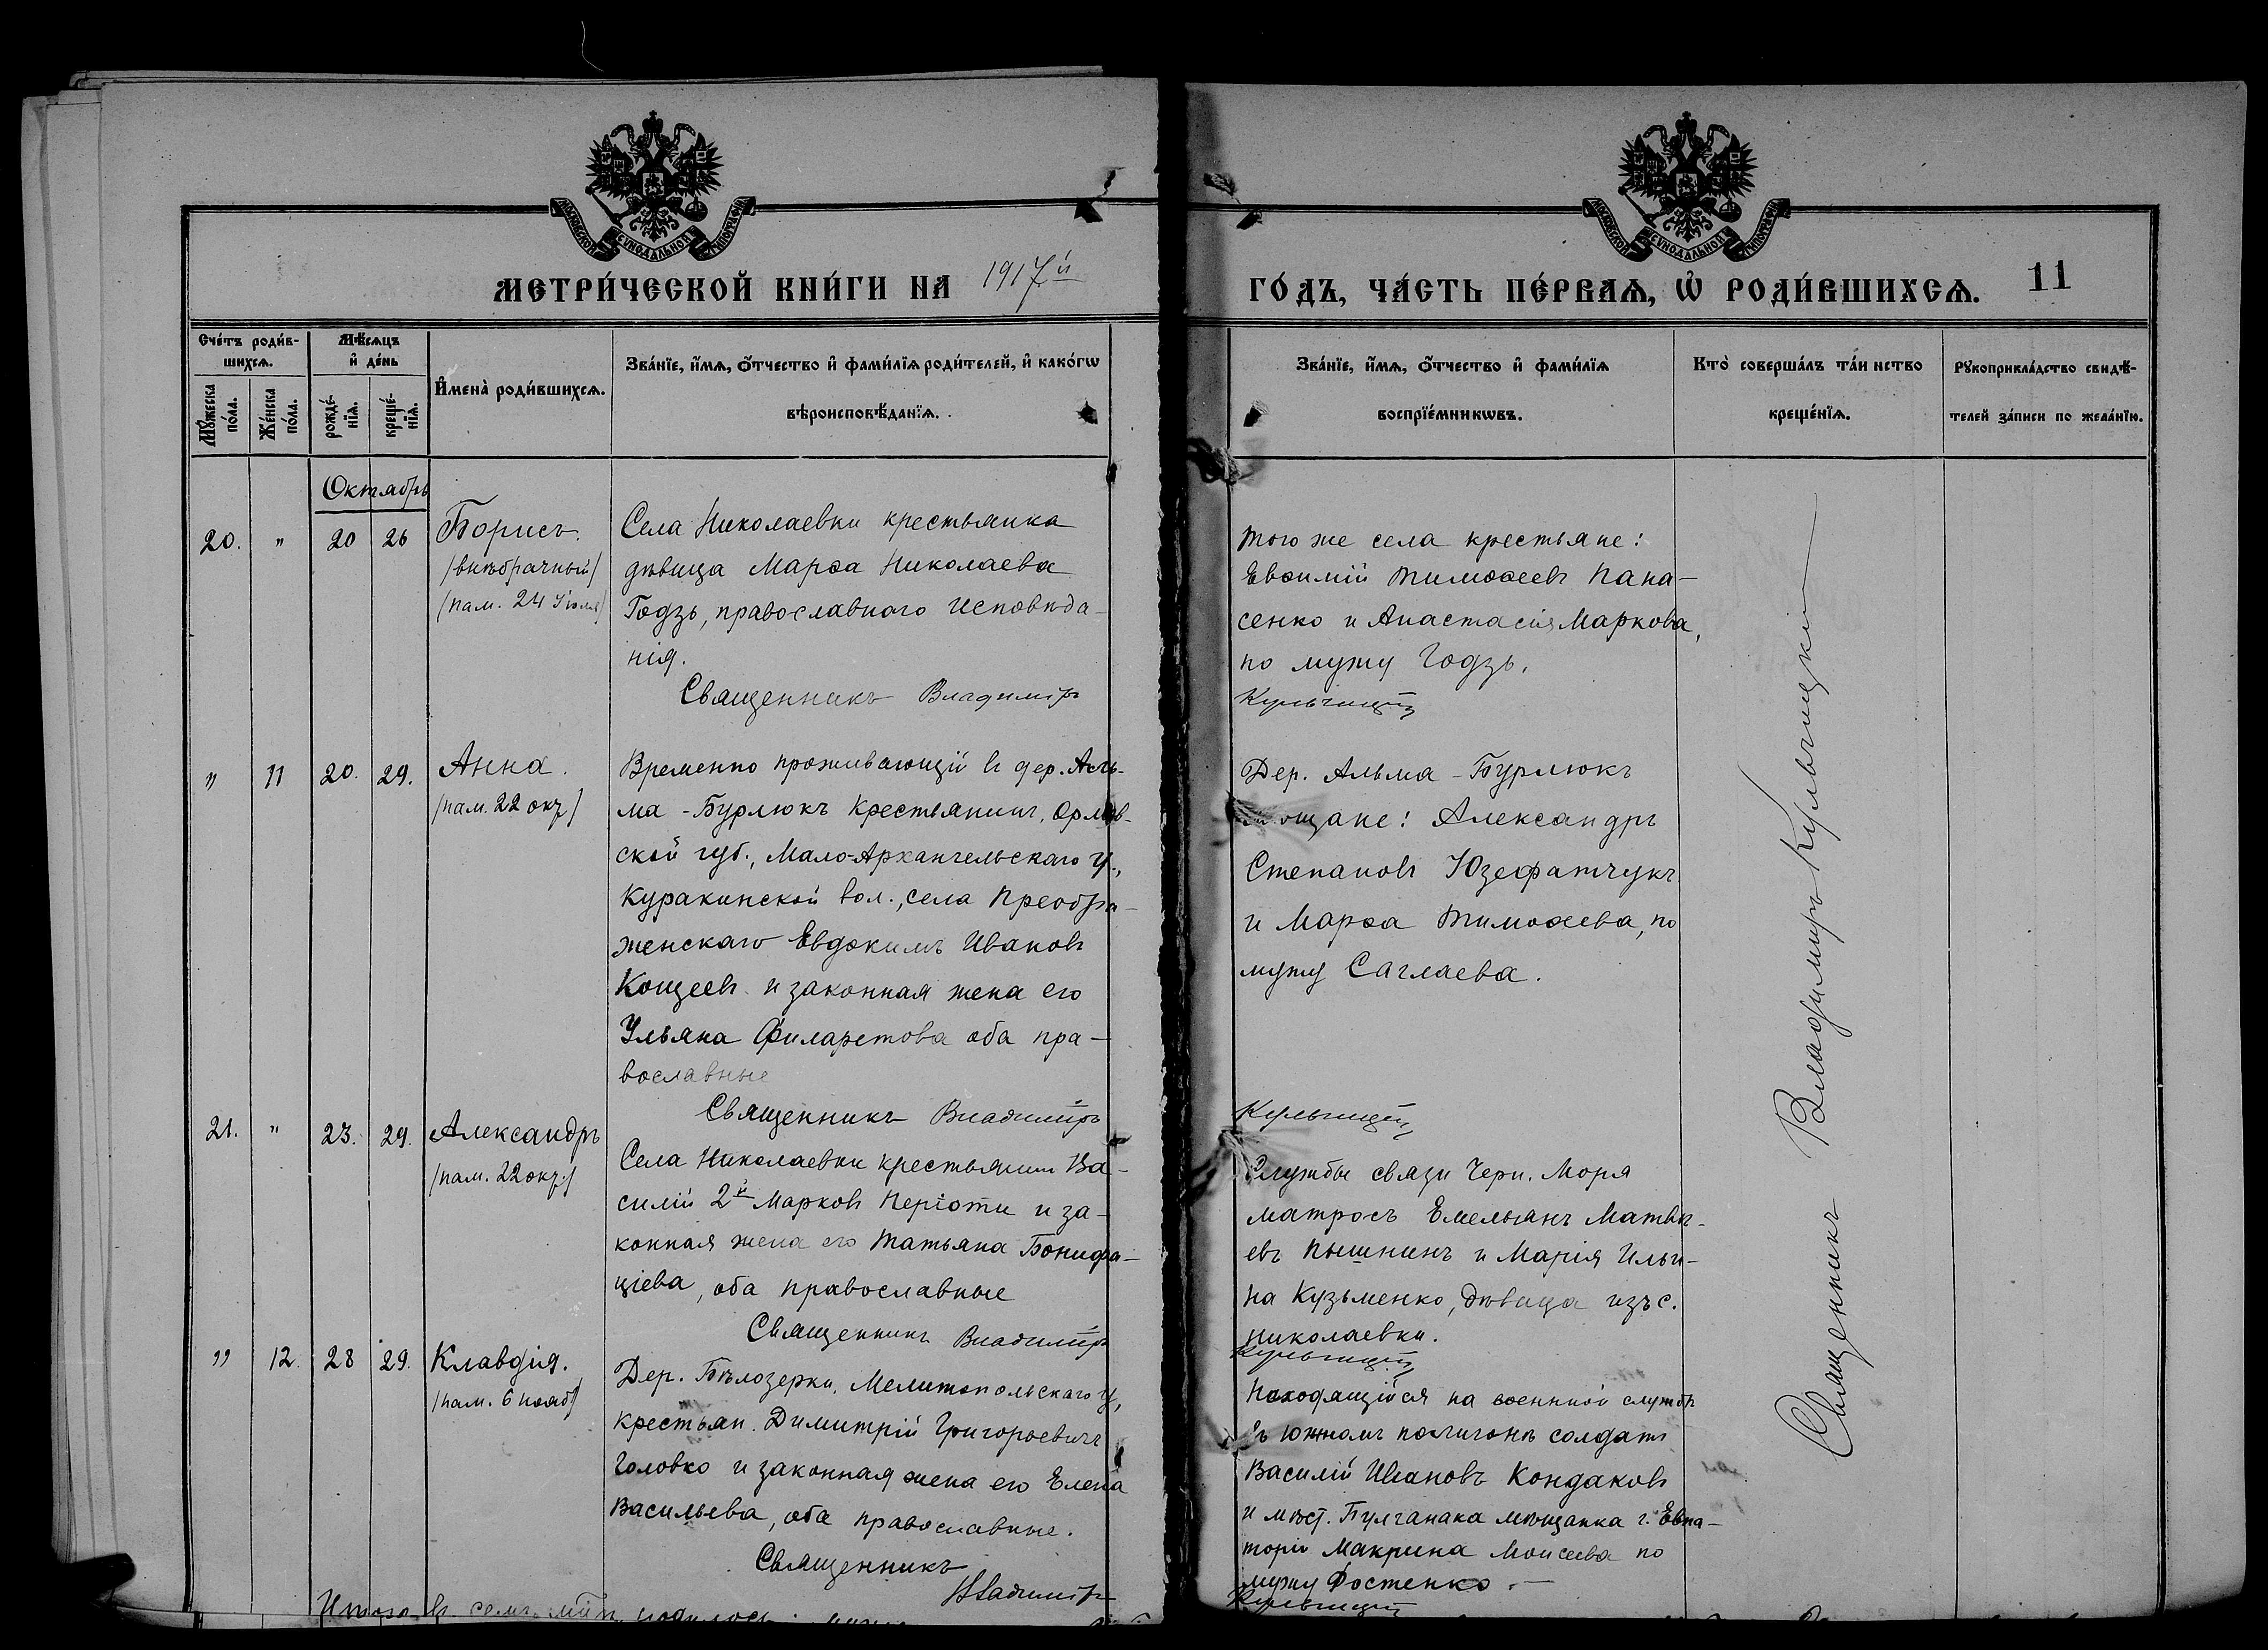 МОСКОВСКОЙ СѴНОДАЛЬНОЙ ТИПОГРАФІИ
МЕТРИ́ЧЕСКОЙ КНИ́ГИ НА 1917й
Сче́тъ роди́в-
шихсѧ.
Мꙋ́жеска по́ла.
Же́нска по́ла.
Мѣ́сѧцъ
и҆ де́нь
рожде́-
нїѧ.
креще́-
нїѧ.
И҆мена̀ роди́вшихсѧ.
Зва́нїе, и҆́мѧ, ѻ҆́тчество и҆ фами́лїѧ роди́телей, и҆ како́гѡ
вѣроисповѣ́данїѧ.
Октябрь
20. " 20 26 Борисъ.
/внѣбрачный/
/пам. 24 Іюля/
Села Николаевки крестьянка
дѣвица Марѳа Николаева
Годзь, православнаго исповѣда-
нія.
Священникъ Владиміръ
" 11 20. 29. Анна.
/пам. 22 окт./
Временно проживающій въ дер. Аль-
ма-Бурлюкъ крестьянинъ, Орлов-
ской губ., Мало-Архангельскаго у.,
Куракинской вол., села Преобра-
женскаго Евдокимъ Ивановъ
Кощеевъ и законная жена его
Ульяна Филаретова оба пра-
вославные
Священникъ Владиміръ
21. " 23. 29. Александръ
/пам. 22 окт./
Села Николаевки крестьянинъ Ва-
силій 2й Марковъ Періоти и за-
конная жена его Татьяна Бонифа-
ціева, оба православные
Священникъ Владиміръ
" 12. 28 29. Клавдія.
/пам. 6 нояб/
Дер. Бѣлозерки, Мелитопольскаго у,
крестьян. Димитрій Григорьевичъ
Головко и законная жена его Елена
Васильева, оба православные.
Священникъ
Владиміръ
Итого въ семъ родилось:
МОСКОВСКОЙ СѴНОДАЛЬНОЙ ТИПОГРАФІИ
ГО́ДЪ, ЧА́СТЬ ПЕ́РВАѦ, Ѡ҆ РОДИ́ВШИХСѦ. 11
Зва́нїе, и҆́мѧ, ѻ҆́тчество и҆ фами́лїѧ
воспрїе́мникѡвъ.
Кто̀ соверша́лъ та́инство
креще́нїѧ.
Рꙋкоприкла́дство свидѣ́-
телей за́писи по жела́нїю.
того же села крестьяне:
Евѳимій Тимоѳеевъ Пана-
сенко и Анастасія Маркова,
по мужу Годзь.
Кульчицкій
Дер. Альма-Бурлюкъ
мѣщане: Александръ
Степановъ Юзефатчукъ
и Марѳа Тимоѳеева, по
мужу Саглаева.
Кульчицкій
Службы связи Черн. Моря
матросъ Емельянъ Матвѣ-
евъ Пышнинъ и Марія Ильи-
на Кузьменко, дѣвица изъ с.
Николаевки.
Кульчицкій
Находящійся на военной службѣ
въ южномъ полигонѣ солдатъ
Василій Ивановъ Кондаковъ
и мѣст. Булганака мѣщанка г. Евпа-
торіи Макрина Моисеева по
мужу Фостенко.
Кульчицкій
Священникъ Владимиръ Кульчицкій